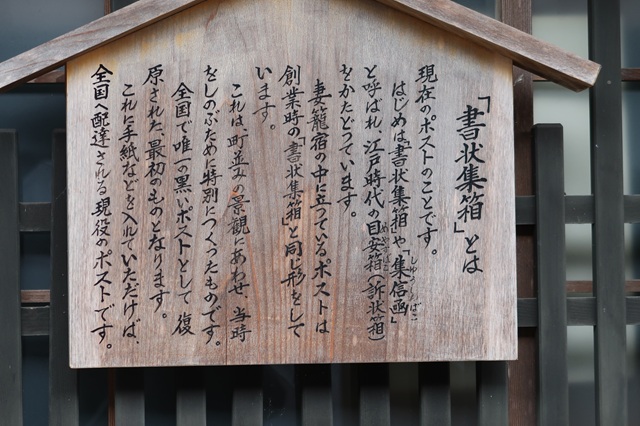 「書状集箱」とは
現在のポストのことです。
はじめは「書状集箱」や「集信函」
しゅうしんばこ
と呼ばれ、江戸時代の目安箱(訴状箱)
めやすばこ
をかたどっています。
妻籠宿の中に立っているポストは
創業時の「書状集箱」と同じ形をして
います。
これは、町並みの景観にあわせ、当時
をしのぶために特別につくったものです。
全国で唯一の黒いポストとして復
原された、最初のものとなります。
これに手紙などを入れていただけば、
全国へ配達される現役のポストです。